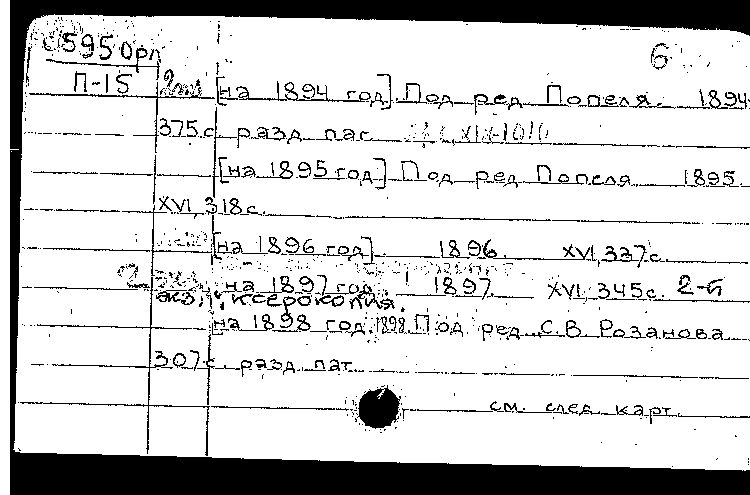 С5950рл 6
П-15 2экз [на 1894 год]. Под ред Попеля. 1894
375с. разд паг. XIX-1010
[на 1895 год]. Под ред Попеля 1895.
XVI, 318с.
[на 1896 год]. 1896. XVI, 337с.
2 экз. на 1897 год. 1897. XVI, 345с. 2-й
экз. ксерокопия.
на 1898 год. 1898. Под ред. С.В. Розанова
307с. разд. паг.
см. след. карт.